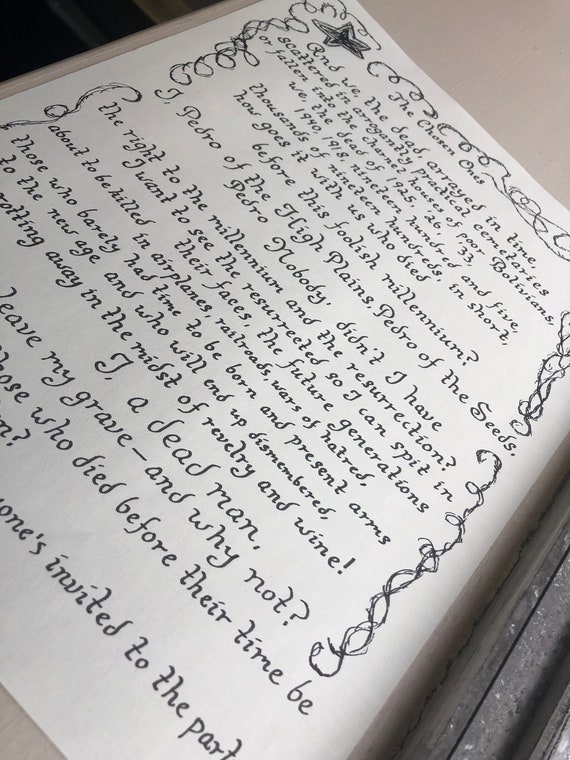 The Chosen Ones
And we, the dead, arrayed in time,
scattered in arrogantly practical cemeteries
or fallen into the charnel houses of poor Bolivians,
we, the dead of 1925, 26, '33,
1940, 1918, nineteen hundred and five,
thousands of nineteen hundreds, in short,
how goes it with us who died
before this foolish millennium?
I, Pedro of the High Plains, Pedro of the Seeds,
Pedro Nobody: didn't I have
the right to the millennium and the resurrection?
I want to see the resurrected so I can spit in
their faces, the future generations
about to be killed in airplanes, railroads, wars of hatred,
those who barely had time to be born and present arms
to the new age and who will end up dismembered,
rotting away in the midst of revelry and wine!
I, a dead man,
leave my grave—and why not?
those who died before their time be
one's invited to the part